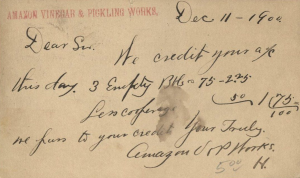 AMAZON VINEGAR & PICKLING WORKS.
Dec 11 - 190
Dear Sir.
We credit your a/c
this day. 3 Empty Bbls 75 - 2.25
Less 50 1.75
we pass to your credit Yours Truly.
Amazon V & P Works.
500 H.